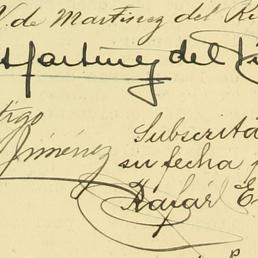 V. de Martinez del Ri
Martinez del Ri
tigo
Jiménez
Subscrita
su fecha
Rafael E